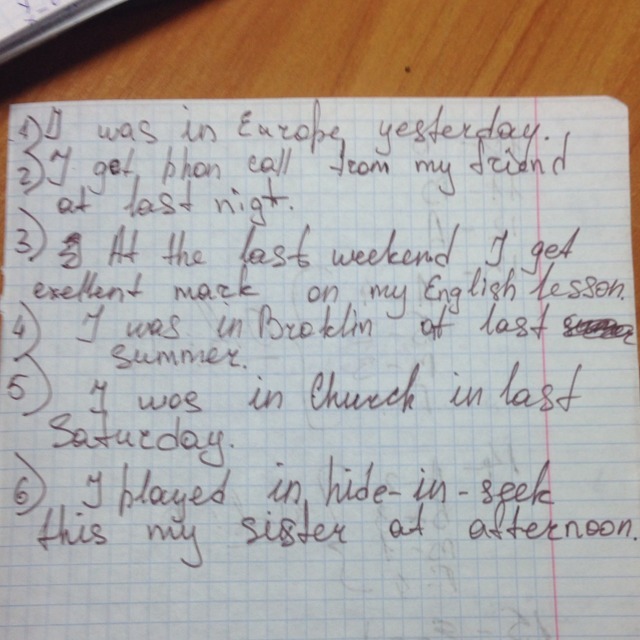 1) I was in Europe yesterday.
2) I get phon call from my friend
at last nigt.
3) At the last weekend I get
exellent mark on my English lesson.
4) I was in Broklin at last
summer.
5) I was in Church in last
Saturday.
6) I played in hide-in-seek
this my sister at afternoon.